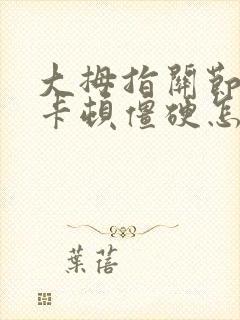 大拇指關節
卡頓僵硬怎
葉蓓